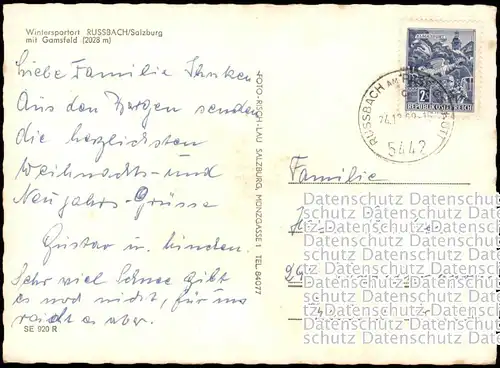 Wintersportort RUSSBACH/Salzburg
mit Gamsfeld (2028 m)
Liebe Familie
Aus den Bergen senden
die herzlichsten
Weihnachts- und
Neujahrs-Grüsse
Gustav u.
Sehr viel Schnee gibt
es noch nicht, für uns
reicht es aber.
SE 920 R
FOTO RISCH-LAU SALZBURG, MÜNZGASSE 1 TEL. 84077
2S
REPUBLIK ÖSTERREICH
RUSSBACH AM PASS GSCHÜTT
5442
Familie
Datenschutz Datenschutz
Datenschutz Datenschutz
Datenschutz Datenschutz
Datenschutz Datenschutz
Datenschutz Datenschutz
Datenschutz Datenschutz
Datenschutz Datenschutz
Datenschutz Datenschutz